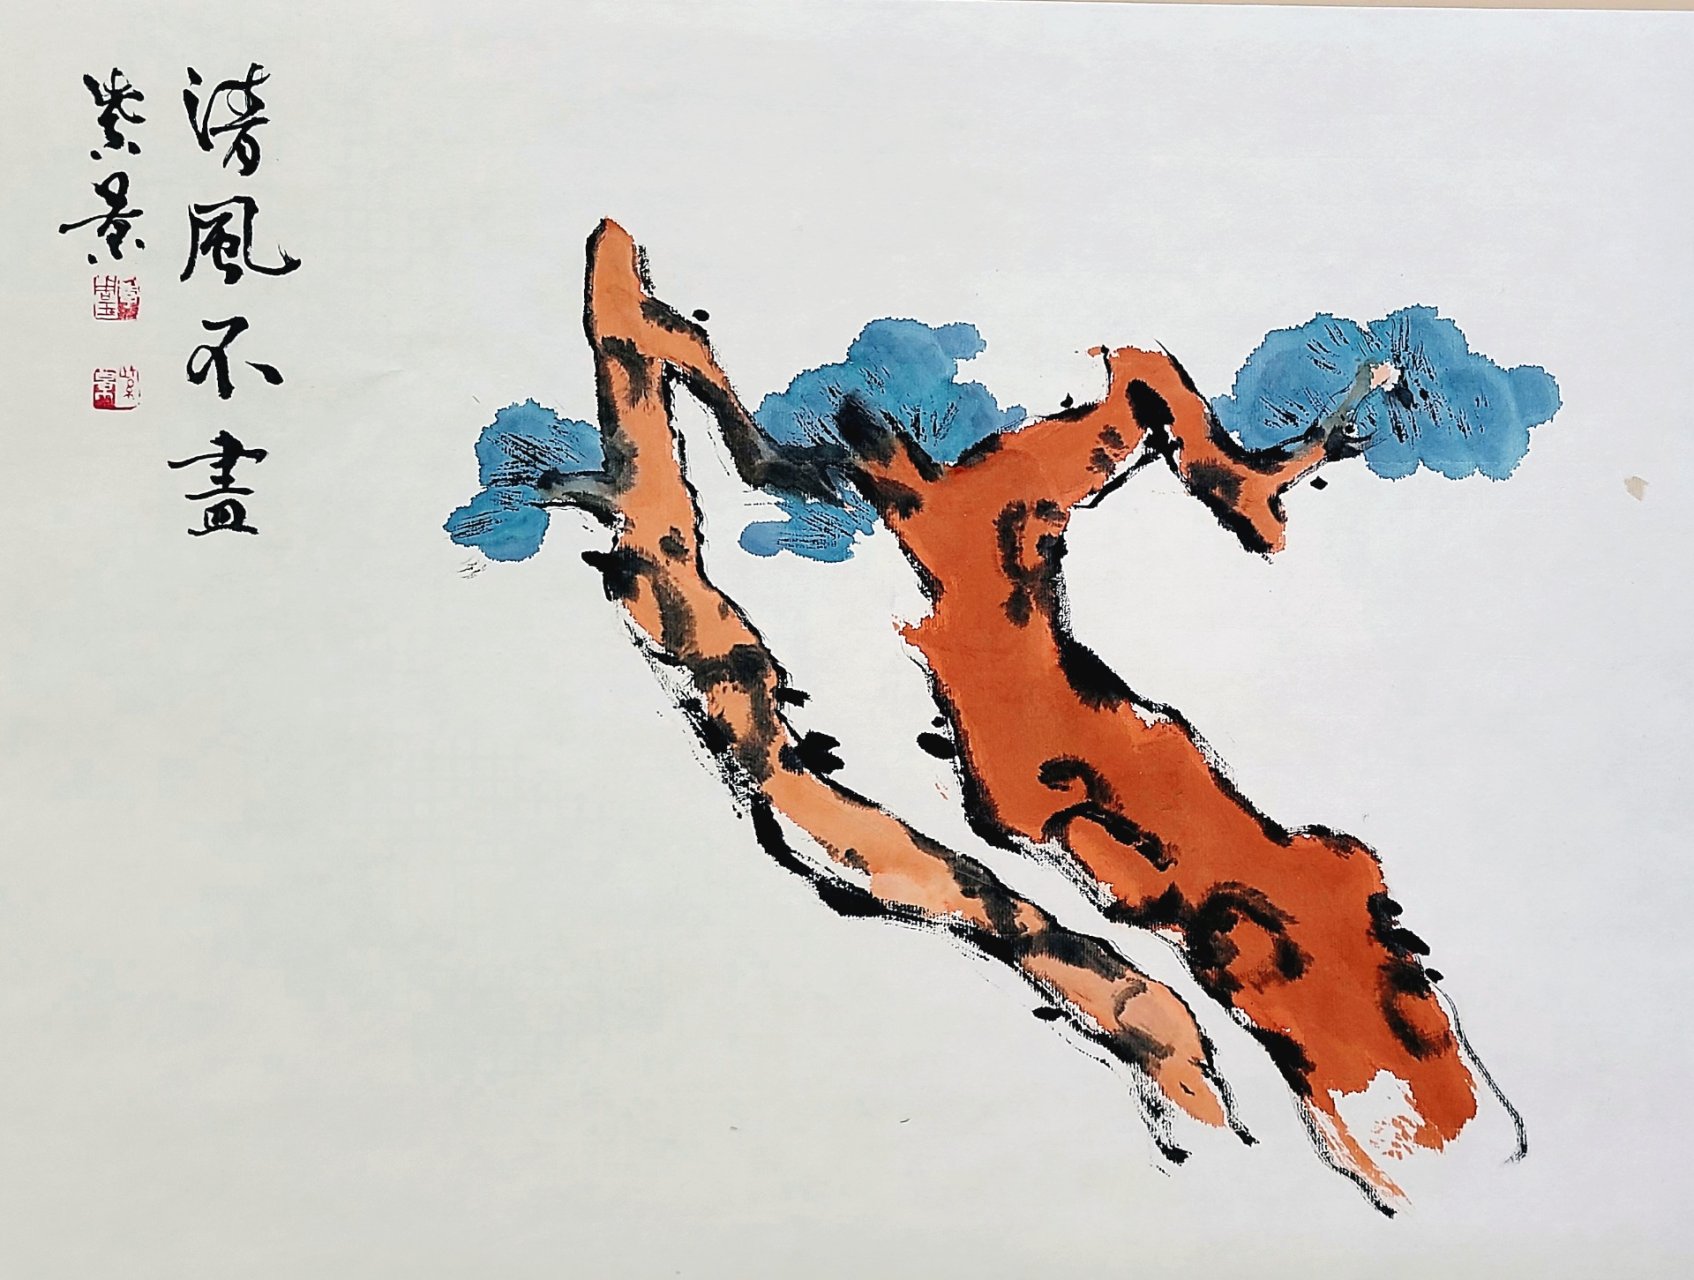 清風不盡
紫景